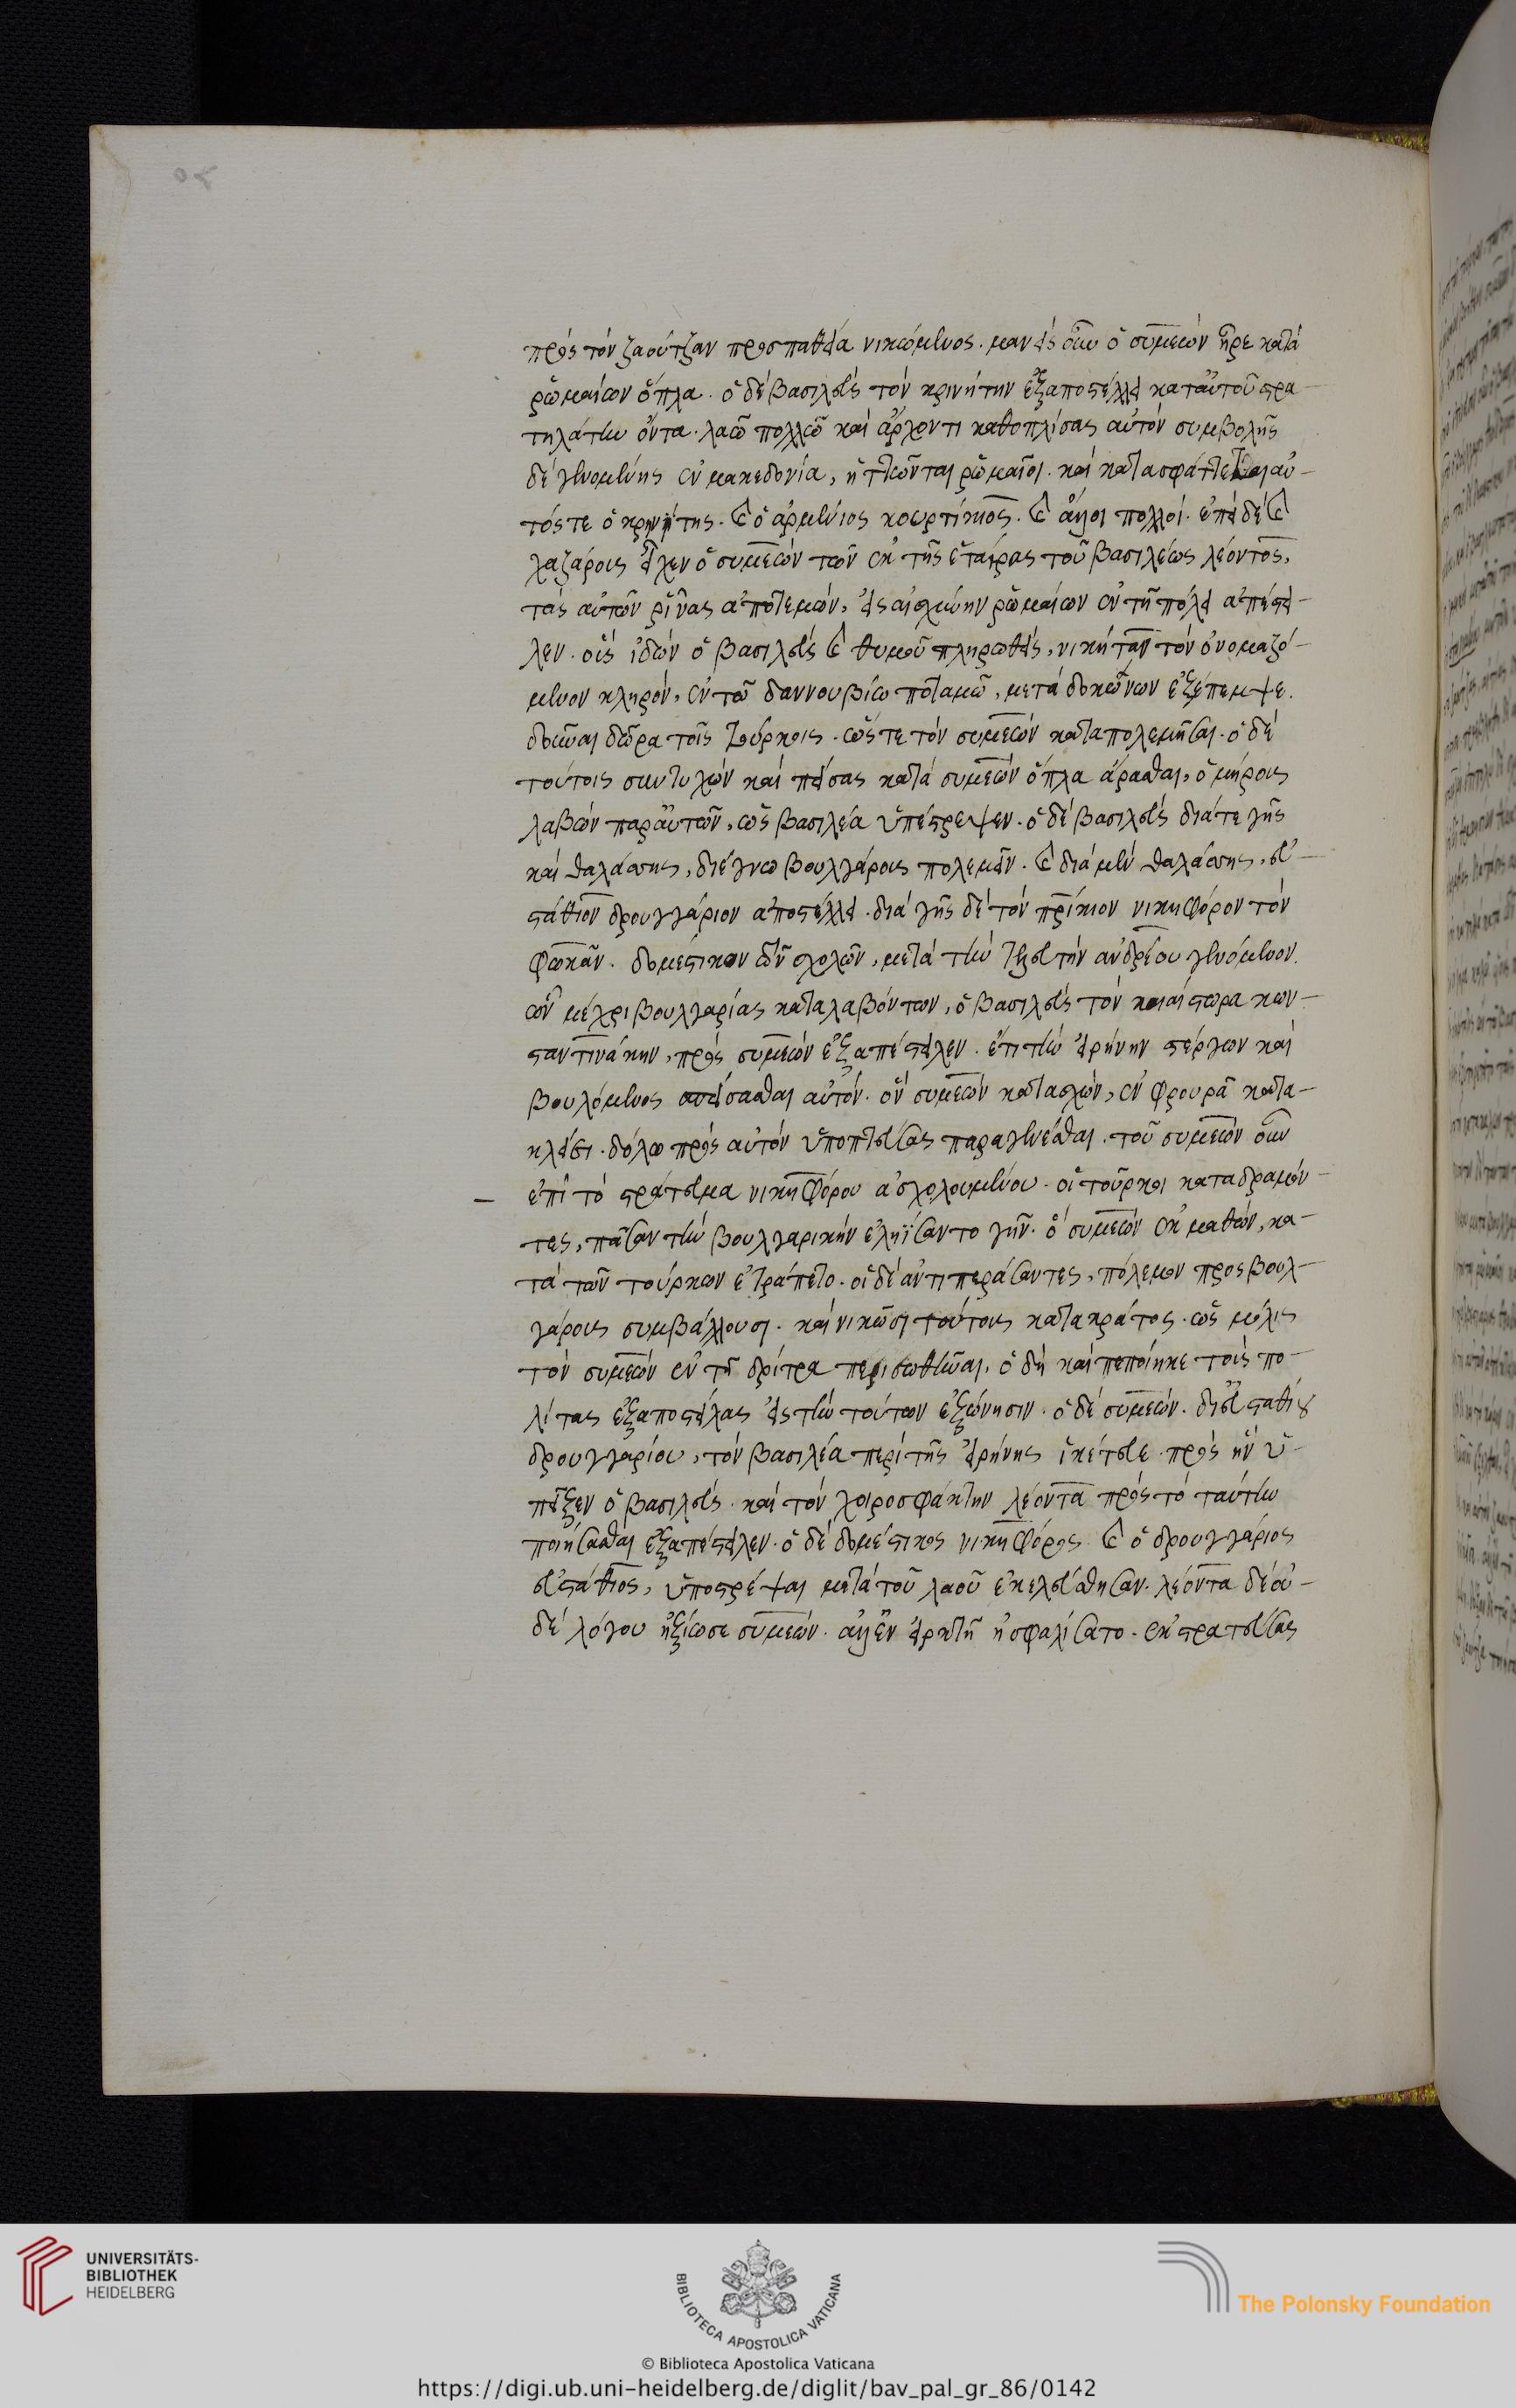 πρὸς τὸν ζαούτζαν προσπαθεία νικώμενος. μανεὶς οὖν ὁ συμεὼν ἦρε κατὰ
ῥωμαίων ὅπλα. ὁ δὲ βασιλεὺς τὸν κρινήτην ἐξαποστέλλει κατ' αὐτοῦ στρα-
τηλάτην ὄντα. λαῶ πολλῶ καὶ ἄρχοντι καθοπλίσας αὐτόν συμβολῆς
δὲ γενομένης ἐν μακεδονία, ἡττῶνται ῥωμαῖοι. καὶ κατασφάττεται αὐ-
τός τε ὁ κρηνίτης. καὶ ὁ ἀρμένιος κουρτίκιος. καὶ ἄλλοι πολλοί. ἐπεὶ δὲ καὶ
χαζάρους εἶλεν ὁ συμεὼν τῶν ἐκ τῆς ἑταίρας τοῦ βασιλέως λέοντος,
τὰς αὐτῶν ῥῖνας ἀποτεμών, εἰς αἰσχύνην ῥωμαίων ἐν τῆ πόλει ἀπέστει-
λεν. οὓς ἰδὼν ὁ βασιλεὺς καὶ θυμοῦ πληρωθείς, νικήταν τὸν ὀνομαζό-
μενον κληρόν, ἐν τῶ δαννουβίω ποταμῶ, μετὰ δρομώνων ἐξέπεμψε.
δοῦναι δῶρα τοῖς τούρκοις. ὥστε τὸν συμεὼν καταπολεμῆσαι. ὁ δὲ
τούτοις συντυχὼν καὶ πείσας κατὰ συμεὼν ὅπλα ἄρασθαι, ὁμήρους
λαβὼν παρ' αὐτῶν, ὡς βασιλέα ὑπέστρεψεν. ὁ δὲ βασιλεὺς διά τε γῆς
καὶ θαλάσσης, διέγνω βουλγάροις πολεμεῖν. καὶ διὰ μὲν θαλάσσης, εὐ-
στάθιον δρουγγάριον ἀποστέλλει. διὰ γῆς δὲ τὸν πρίκιον νικηφόρον τὸν
φωκᾶν. δομέστικον τῶν σχολῶν, μετὰ τὴν τελευτὴν ἀνδρέου γενόμενον.
ὧν μέχρι βουλγαρίας καταλαβόντων, ὁ βασιλεὺς τὸν κυαίστωρα κων-
σταντινάκην, πρὸς συμεὼν ἐξαπέστειλεν. ἔτι τὴν εἰρήνην στέργων καὶ
βουλόμενος σπείσασθαι αὐτόν. ὃν συμεὼν κατασχών, ἐν φρουρᾶ κατα-
κλείει. δόλω πρὸς αὐτὸν ὑποπτεύσας παραγενέσθαι. τοῦ συμεὼν οὖν
ἐπὶ τὸ στράτευμα νικηφόρου ἀσχολουμένου. οἱ τοῦρκοι καταδραμόν-
τες, πᾶσαν τὴν βουλγαρικὴν ἐληΐσαντο γῆν. ὃ συμεὼν ἐκμαθών, κα-
τὰ τῶν τούρκων ἐτράπετο. οἱ δὲ ἀντιπεράσαντες, πόλεμον προς βουλ-
γάρους συμβάλλουσι. καὶ νικῶσι τούτους κατακράτος. ὡς μόλις
τὸν συμεὼν ἐν τῆ δρίστρα περισωθῆναι, ὃ δὴ καὶ πεποίηκε τοὺς πο-
λίτας ἐξαποστείλας εἰς τὴν τούτων ἐξώνησιν. ὁ δὲ συμεών. δι' εὐσταθίου
δρουγγαρίου, τὸν βασιλέα περὶ τῆς εἰρήνης ἱκέτευε. πρὸς ἣν ὑ-
πεῖξεν ὁ βασιλεύς. καὶ τὸν χοιροσφάκτην λέοντα πρὸς τὸ ταύτην
ποιήσασθαι ἐξαπέστειλεν. ὁ δὲ δομέστικος νικηφόρος καὶ ὁ δρουγγάριος
εὐστάθιος, ὑποστρέψαι μετὰ τοῦ λαοῦ ἐκελεύσθησαν. λέοντα δὲ οὐ-
δὲ λόγου ἠξίωσε συμεών. ἀλλ' ἐν εἱρκτῆ ἠσφαλίσατο. ἐκστρατεύσας